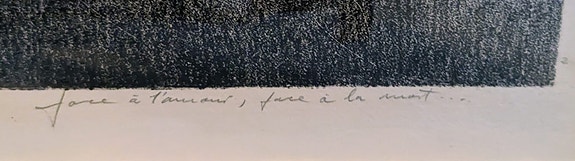 face à l'amour, face à la mort...